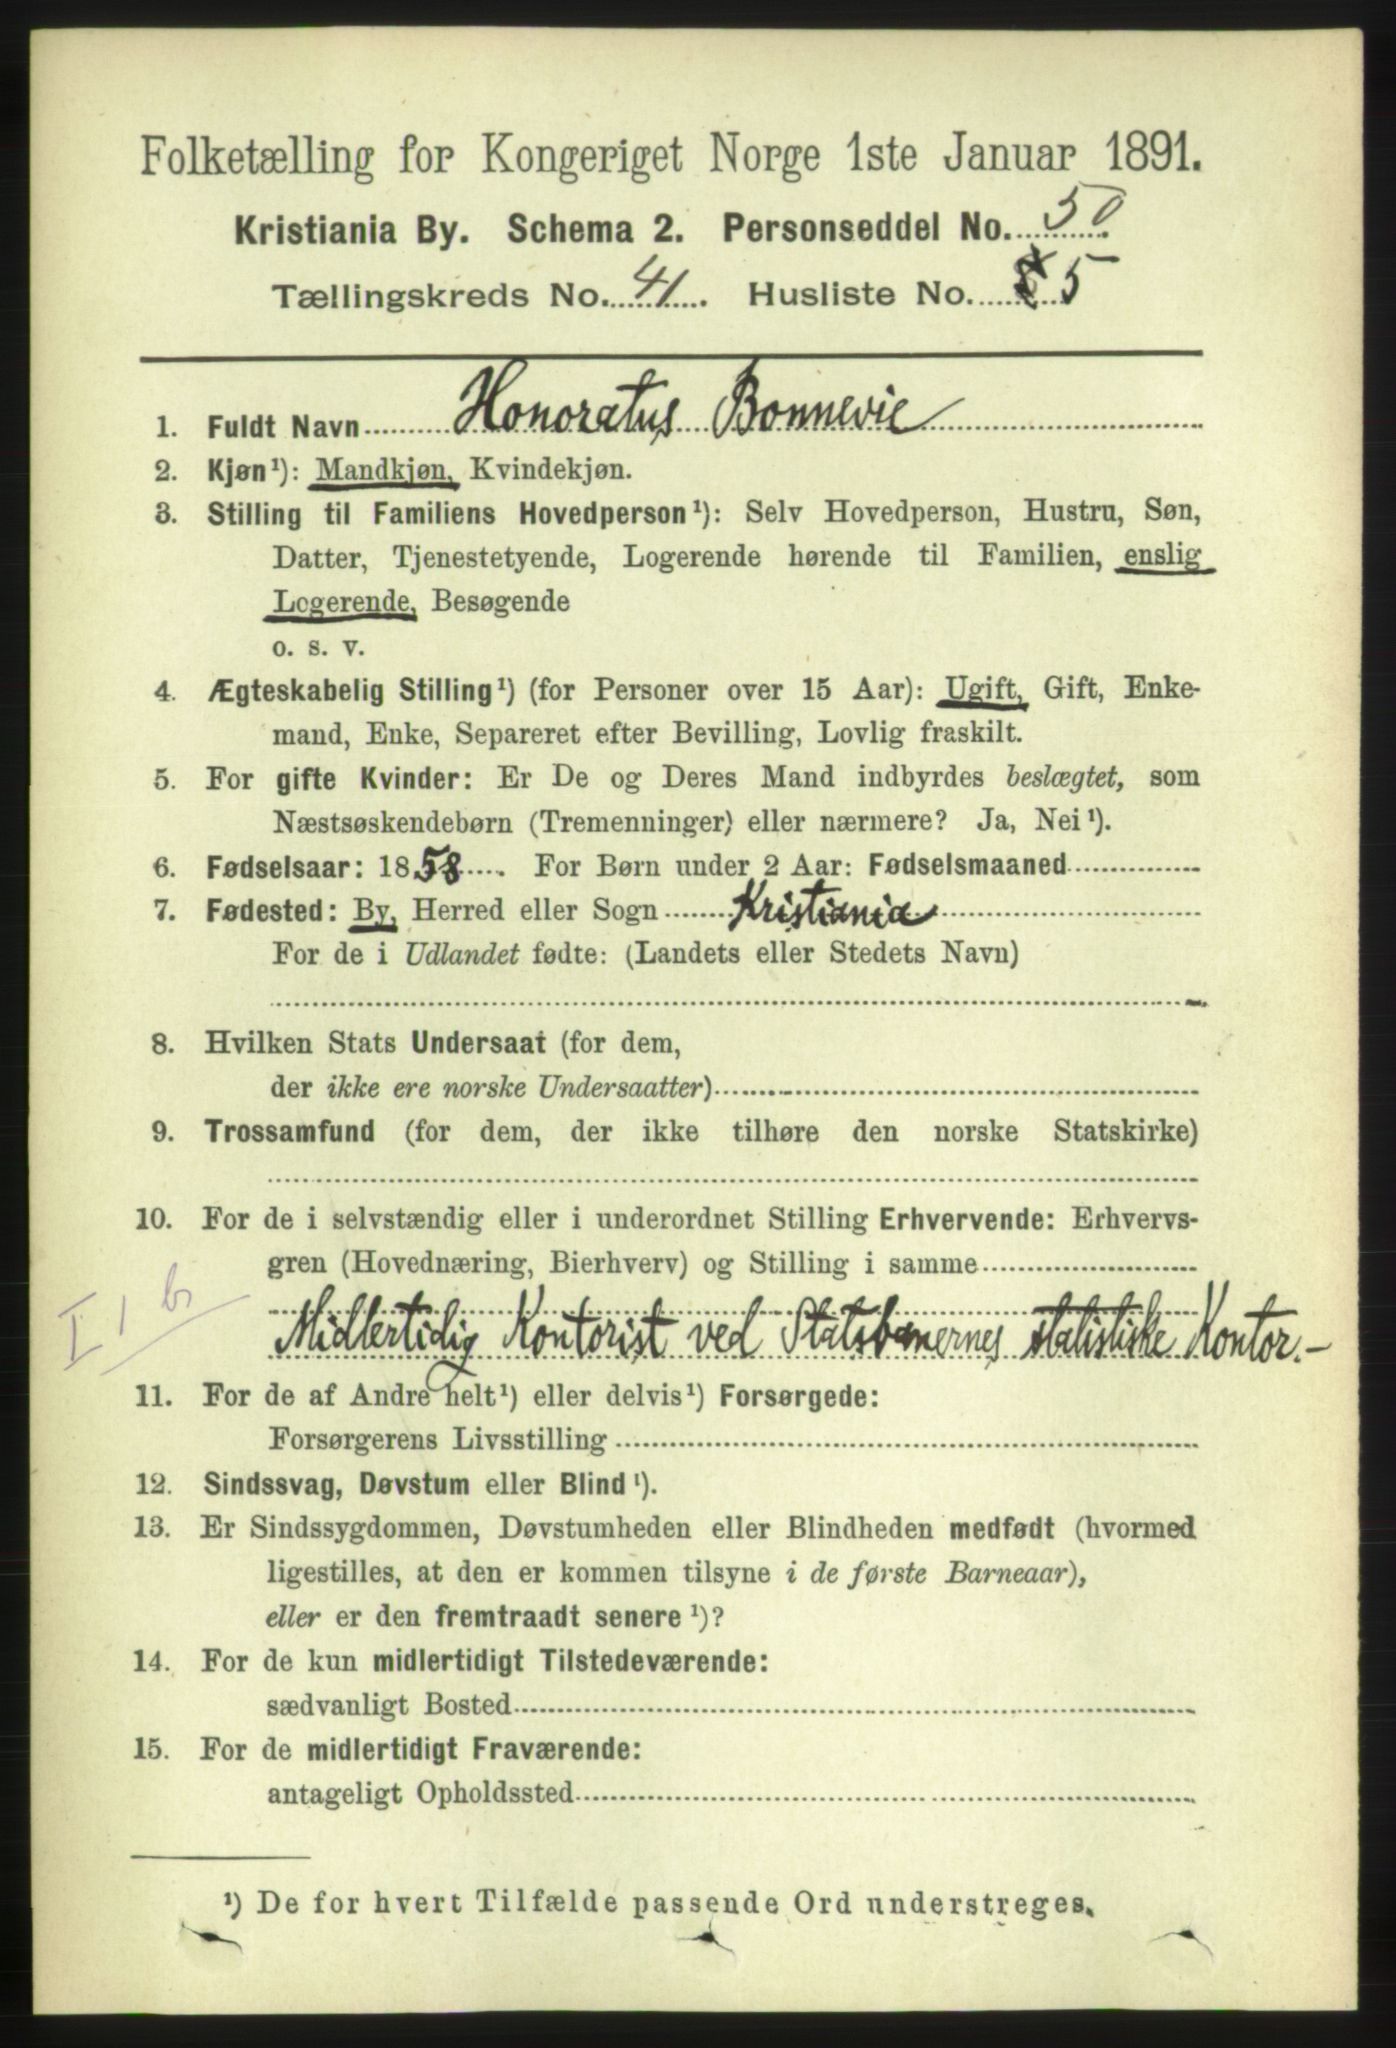 Folketælling for Kongeriget Norge 1ste Januar 1891.
Kristiania By. Schema 2. Personseddel No. 50
Tællingskreds No. 41. Husliste No. 5
1. Fuldt Navn Honoratus Bonnevie
2. Kjøn¹): Mandkjøn, Kvindekjøn.
3. Stilling til Familiens Hovedperson¹): Selv Hovedperson, Hustru, Søn,
Datter, Tjenestetyende, Logerende hørende til Familien, enslig
Logerende, Besøgende
o. s. v.
4. Ægteskabelig Stilling¹) (for Personer over 15 Aar): Ugift, Gift, Enke-
mand, Enke, Separeret efter Bevilling, Lovlig fraskilt.
5. For gifte Kvinder: Er De og Deres Mand indbyrdes beslægtet, som
Næstsøskendebørn (Tremenninger) eller nærmere? Ja, Nei¹).
6. Fødselsaar: 1858. For Børn under 2 Aar: Fødselsmaaned
7. Fødested: By, Herred eller Sogn Kristiania
For de i Udlandet fødte: (Landets eller Stedets Navn)
8. Hvilken Stats Undersaat (for dem,
der ikke ere norske Undersaatter)
9. Trossamfund (for dem, der ikke tilhøre den norske Statskirke)
10. For de i selvstændig eller i underordnet Stilling Erhvervende: Erhvervs-
gren (Hovednæring, Bierhverv) og Stilling i samme
I, b
Midlertidig Kontorist ved Statsbanernes statistiske Kontor.—
11. For de af Andre helt¹) eller delvis¹) Forsørgede:
Forsørgerens Livsstilling
12. Sindssvag, Døvstum eller Blind¹).
13. Er Sindssygdommen, Døvstumheden eller Blindheden medfødt (hvormed
ligestilles, at den er kommen tilsyne i de første Barneaar),
eller er den fremtraadt senere¹)?
14. For de kun midlertidigt Tilstedeværende:
sædvanligt Bosted
15. For de midlertidigt Fraværende:
antageligt Opholdssted
¹) De for hvert Tilfælde passende Ord understreges.